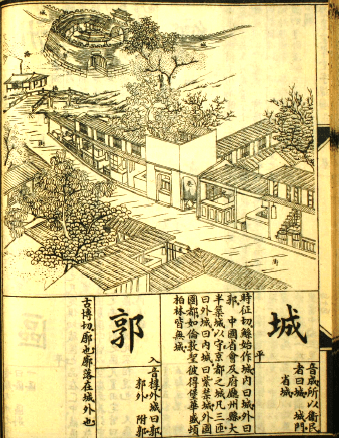 街
城
平
音成所以衞民
者曰城 城門
省城
時征切鯀始作城內曰城外曰
郭 中國省會及府廳州縣大
半築城以守京都之城凡三匝
曰外城曰內城曰紫禁城外國
國都如倫敦聖彼得堡華盛頓
柏林皆無城
郭
入
音椁外城曰郭
郭外 附郭
古博切廓也廓落在城外也